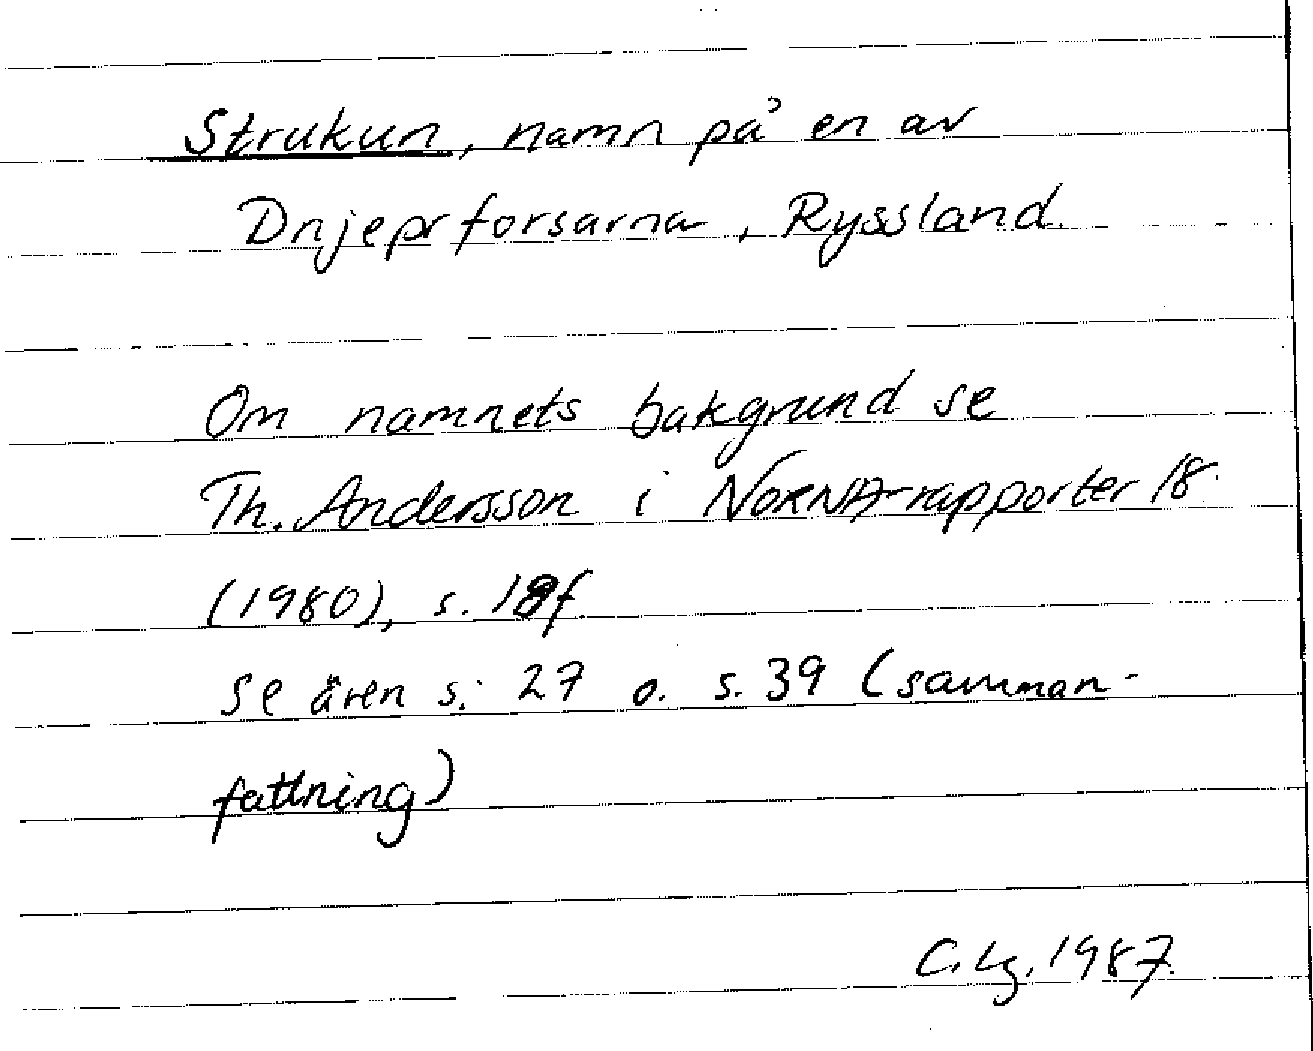 Strukun, namn på en av
Dnjeprforsarna, Ryssland.
Om namnets bakgrund se
Th. Andersson i NORNA-rapporter 18
(1980), s. 18f
se även s. 27 o. s. 39 (samman-
fattning)
C. Lg. 1987.